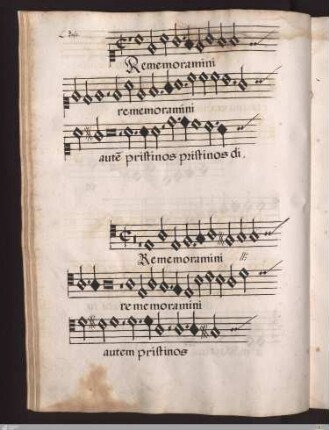 Rememoramini
rememoramini
autē pristinos pristinos di.
Rememoramini
rememoramini
autem pristinos